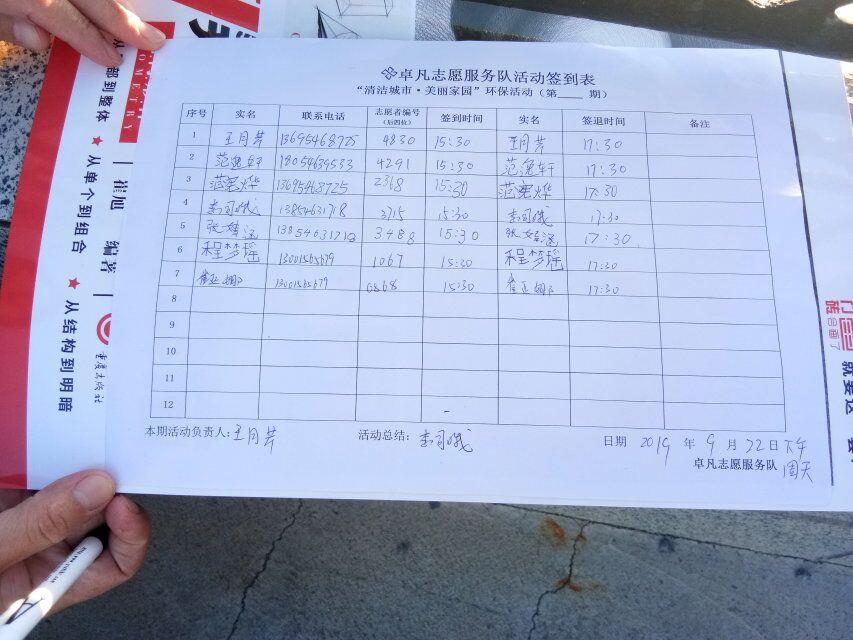 卓凡志愿服务队活动签到表
“清洁城市·美丽家园”环保活动（第____期）
序号 实名 联系电话 志愿者编号（后四位） 签到时间 实名 签退时间 备注
1 王月芹 13695468725 4830 15:30 王月芹 17:30
2 范逸轩 18054639533 4291 15:30 范逸轩 17:30
3 13695468725 2368 15:30 17:30
4 李司晓 13854631718 3715 15:30 李司晓 17:30
5 张婧涵 13854631718 3488 15:30 张婧涵 17:30
6 程梦瑶 13001565679 1067 15:30 程梦瑶 17:30
7 崔亚娜 13001565679 6868 15:30 崔亚娜 17:30
8
9
10
11
12
本期活动负责人：王月芹 活动总结： 日期 2019 年 9 月 22 日 下午
卓凡志愿服务队 周天
部到整体 ★ 从单个到组合 ★ 从结构到明暗
崔旭 编著
重庆出版社
OMETRY
就要这